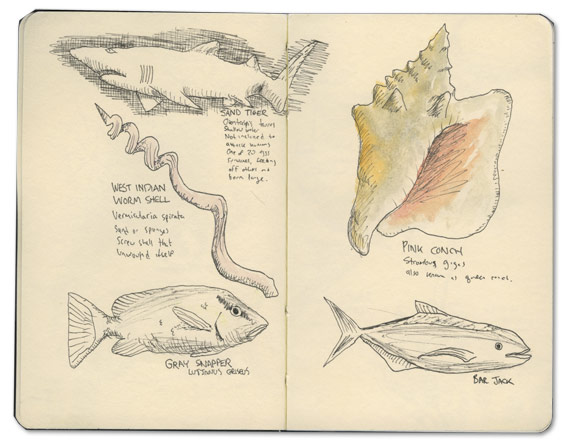 SAND TIGER
Shallow water
Not inclined to
attack humans
One of 20 eggs
survives, feeding
off others and
born large.
WEST INDIAN
WORM SHELL
Vermicularia spirata
Sand or sponges
Screw shell that
unwound itself
GRAY SNAPPER
LUTJANUS GRISEUS
PINK CONCH
Strombus gigas
also known as queen conch.
BAR JACK